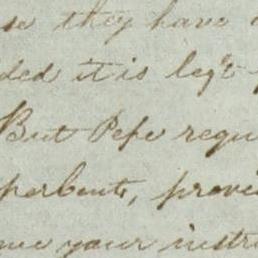 se they have
ded it is left
But Pepe requ
perbents, provi
me your instru